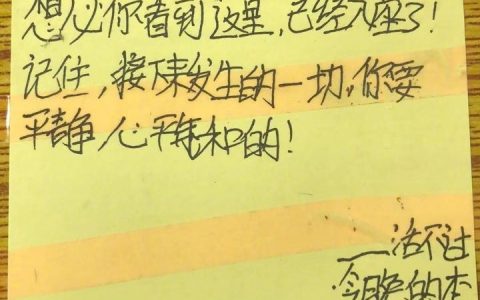 想必你看到这里,已经入座了!
记住,接下来发生的一切,你要
平静,心平气和的!
——活不过
今晚的本